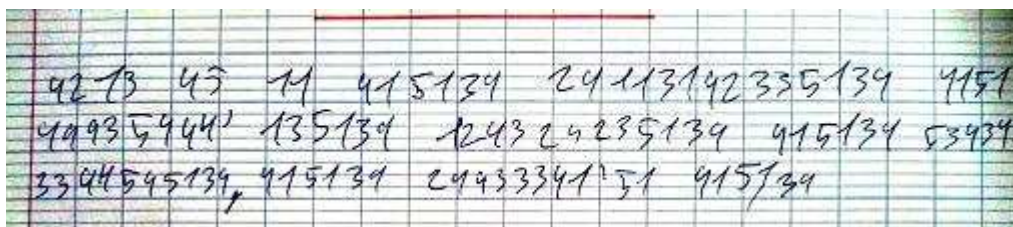 4213 45 11 415134 24113142335134 4151
494935444' 135134 124324235134 415134 53434
3344545134, 415134 244333441'51 415134